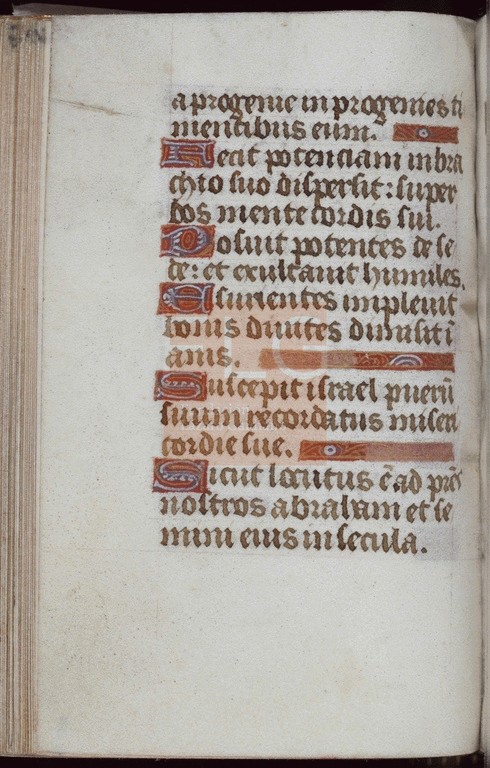 a progenie in progenies ti
mentibus eum.
Fecit potenciam in bra
chio suo dispersit : super
bos mente cordis sui.
Deposuit potentes de se
de : et exultauit humiles.
Esurientes impleuit
bonis diuites dimisit ī
anis.
Suscepit israel puerū
suum recordatus miseri
cordie sue.
Sicut locutus ē ad prēs
nostros abraham et se
mini eius in secula.